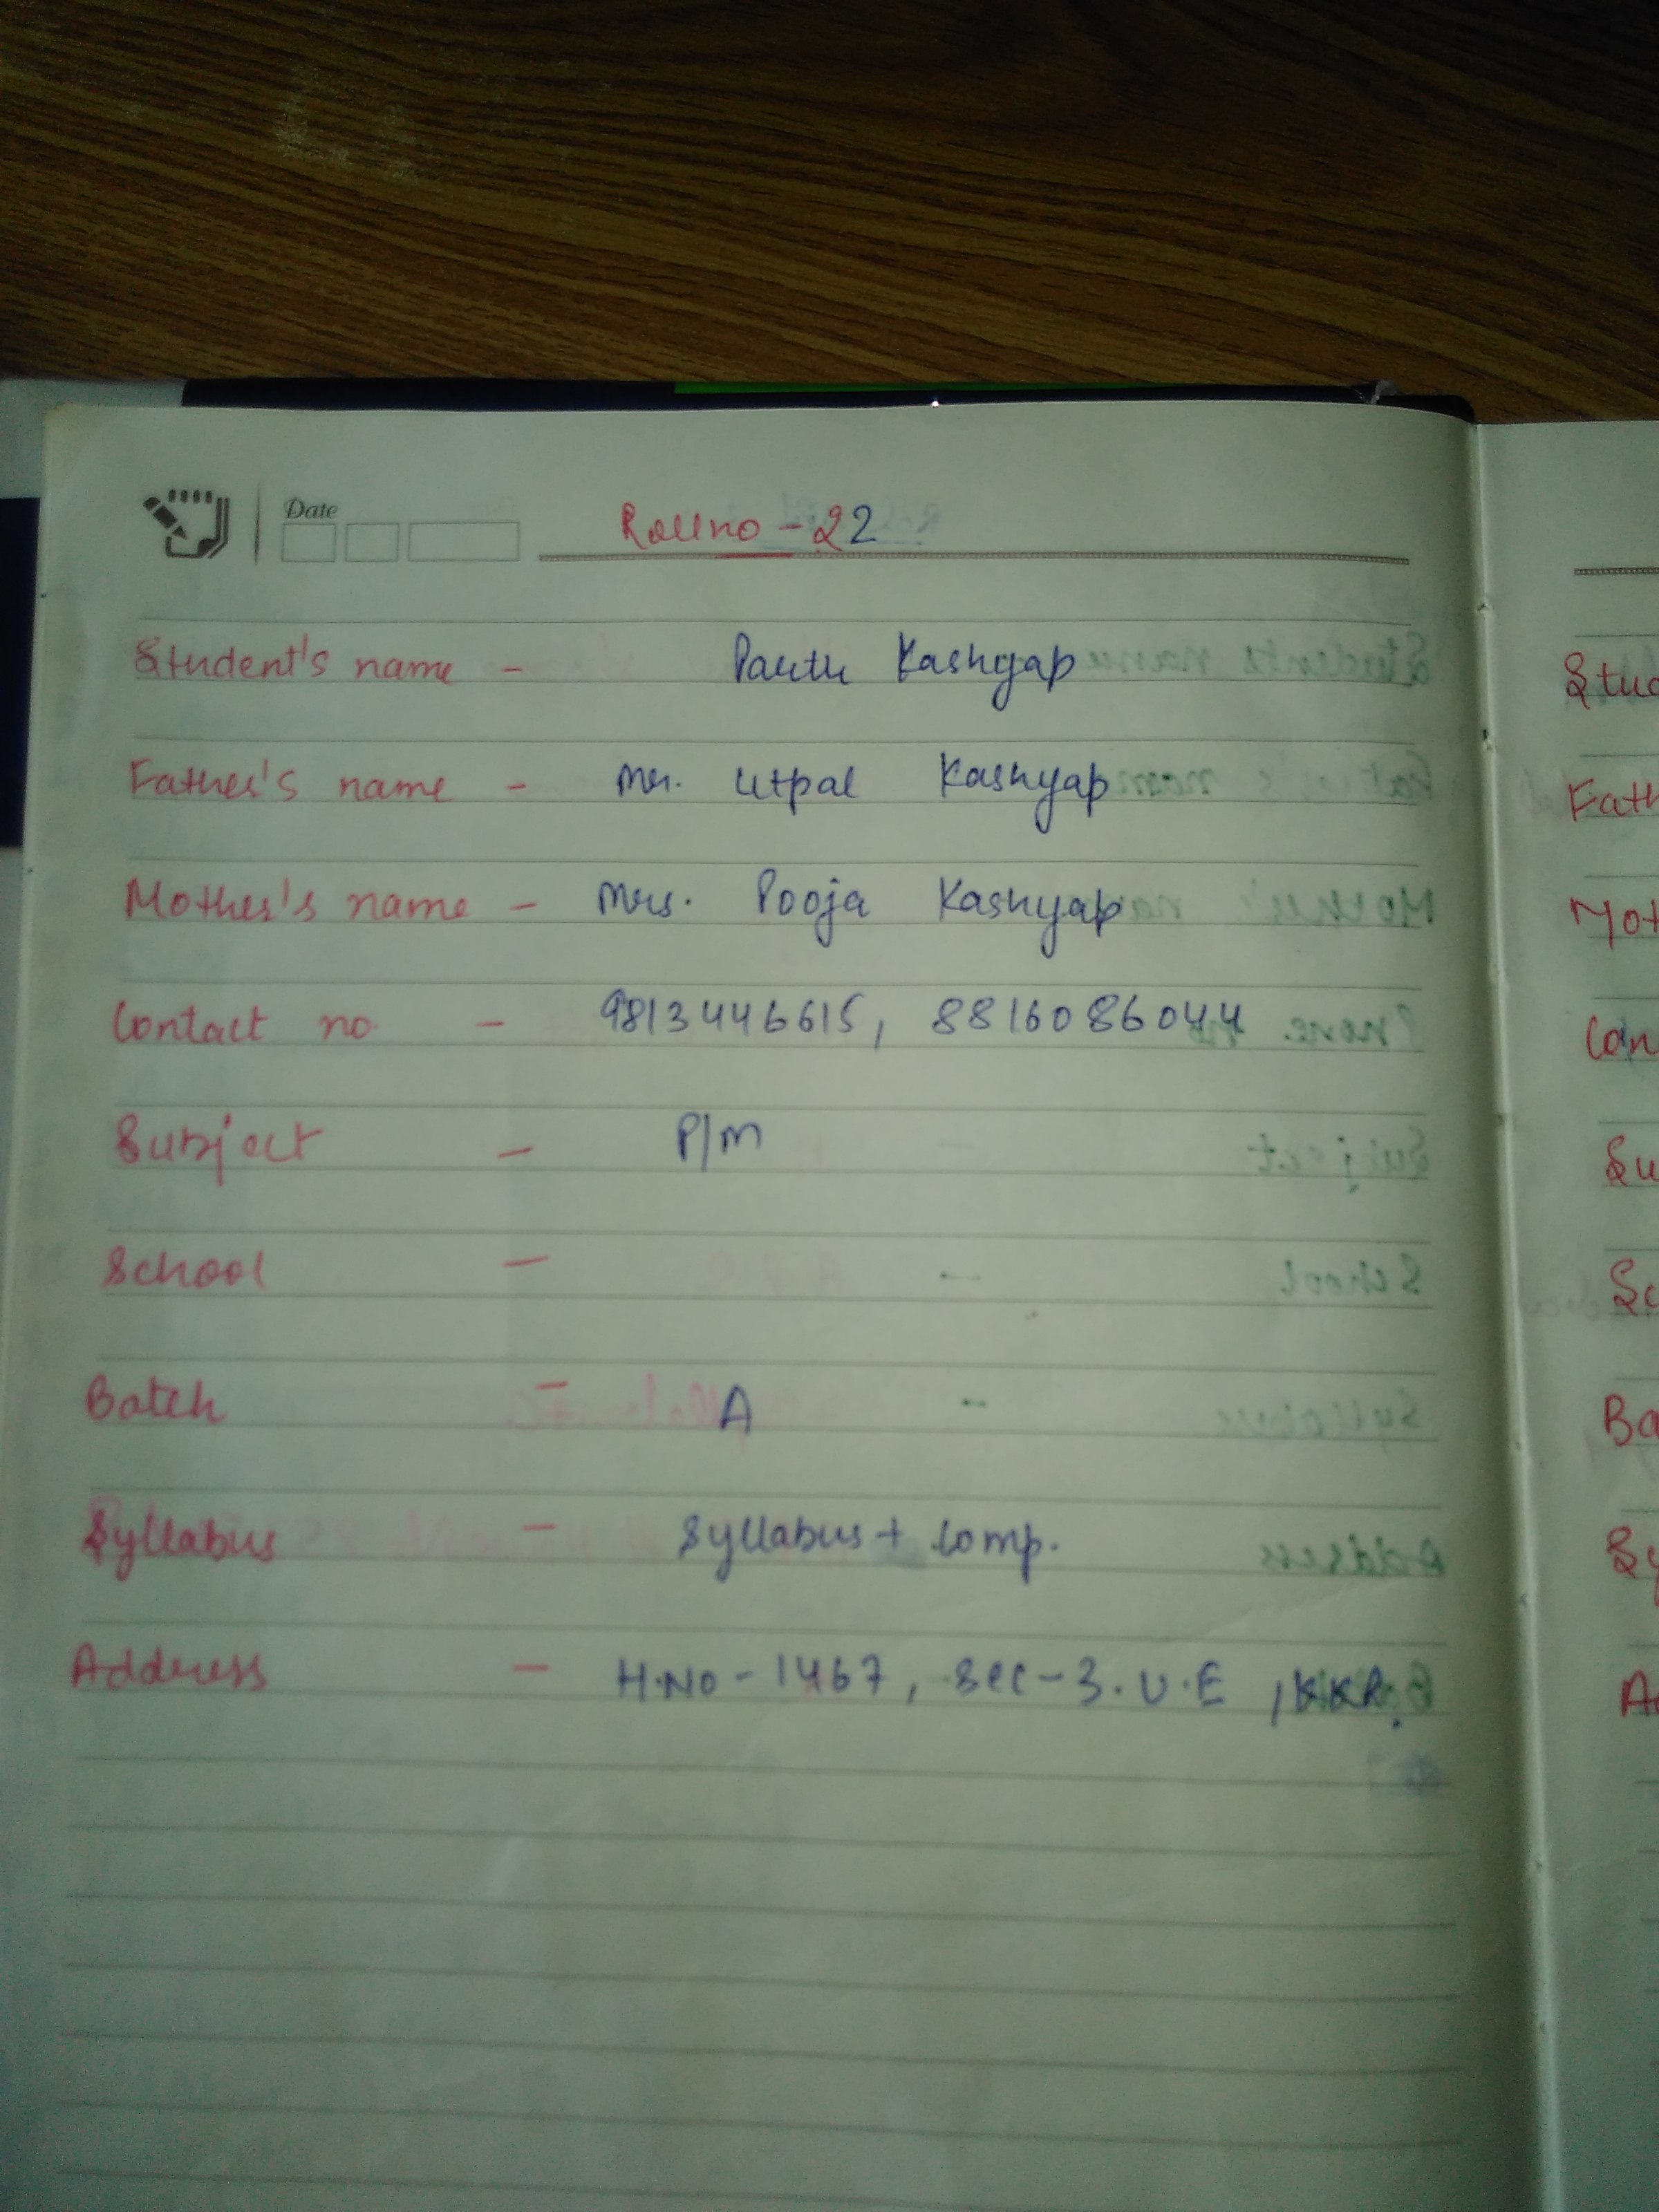 Date
Rollno - 22
Student's name - Parth Kashyap
Father's name - Mr. Utpal Kashyap
Mother's name - Mrs. Pooja Kashyap
Contact no - 9813446615, 8816086044
Subject - P/M
School -
Batch - A
Syllabus - Syllabus + Comp.
Address - H.No - 1467, Sec - 3. U.E, KKR.